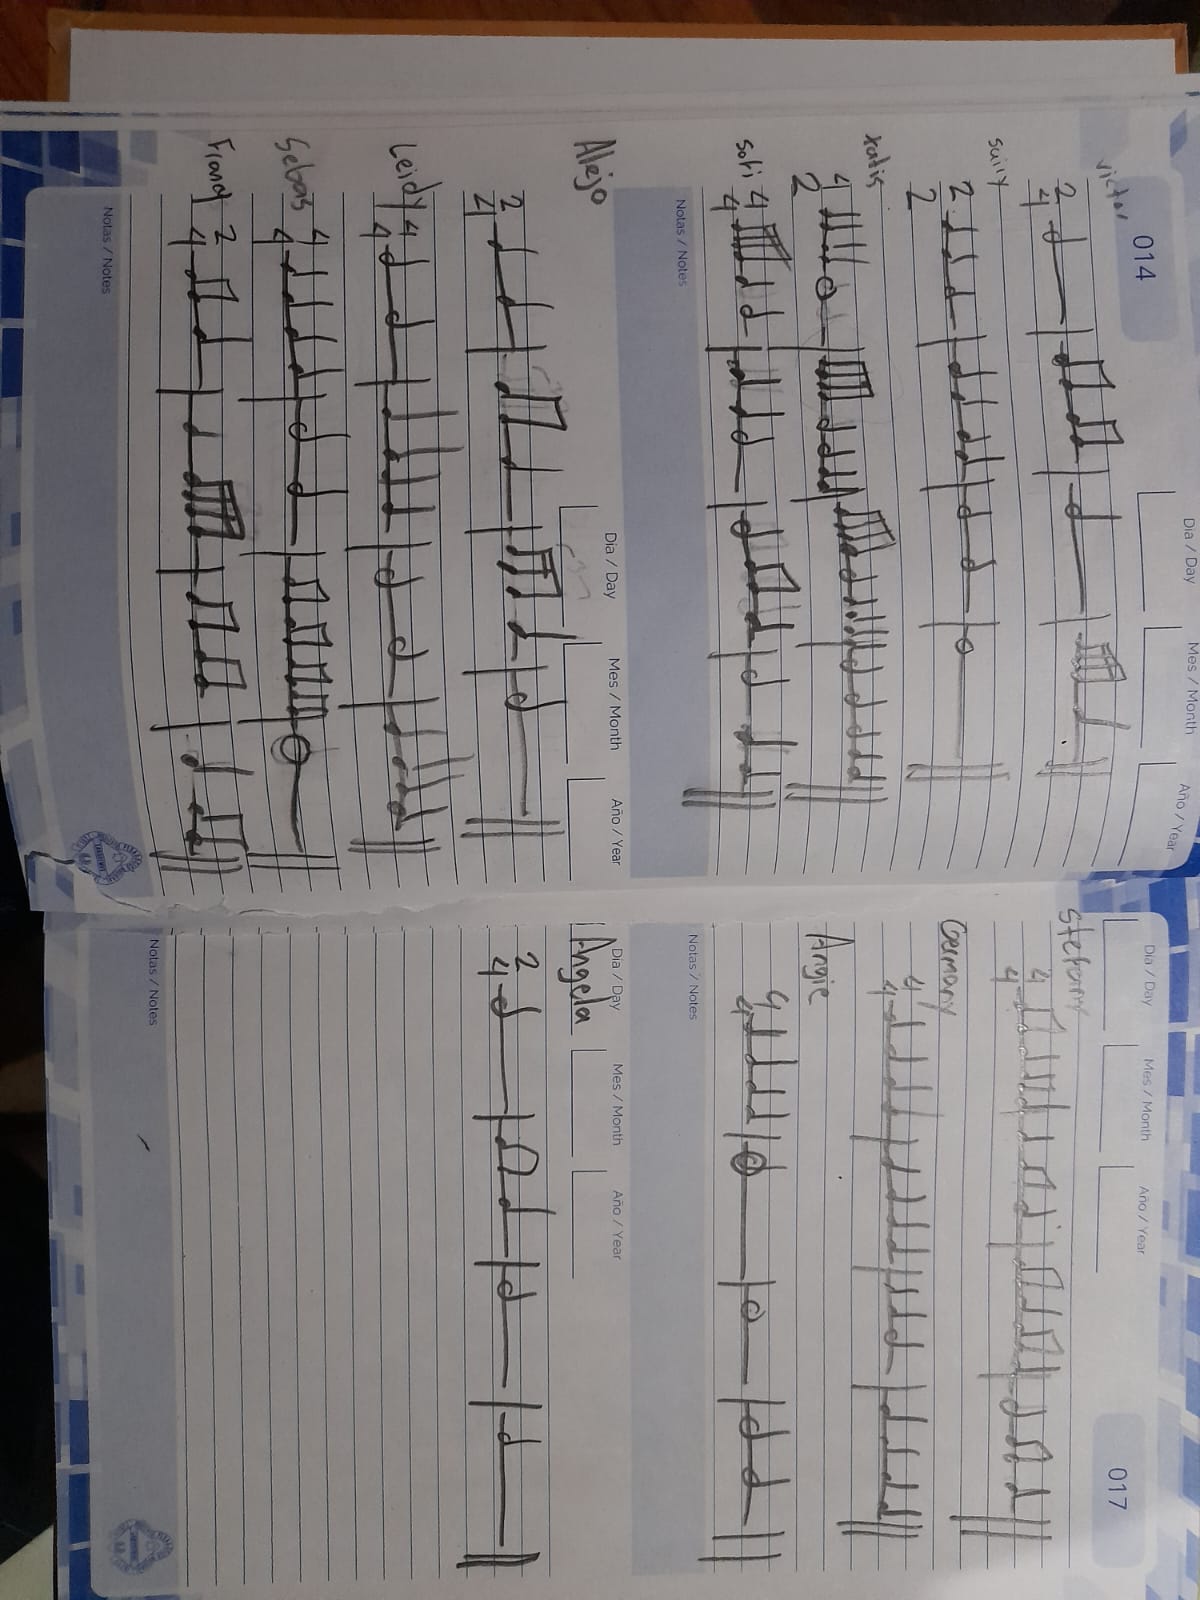 014
Dia / Day Mes / Month Año / Year
victor
2
4
suily
2
2
4
2
Sofi 4
4
Notas / Notes
Dia / Day Mes / Month Año / Year
Alejo
2
4
Leidy 4
4
Sebas 4
4
2
4
Notas / Notes
Dia / Day Mes / Month Año / Year
017
Stefany
4
4
Germany
4
4
Angie
4
4
Notas / Notes
Dia / Day Mes / Month Año / Year
Angela
2
4
Notas / Notes